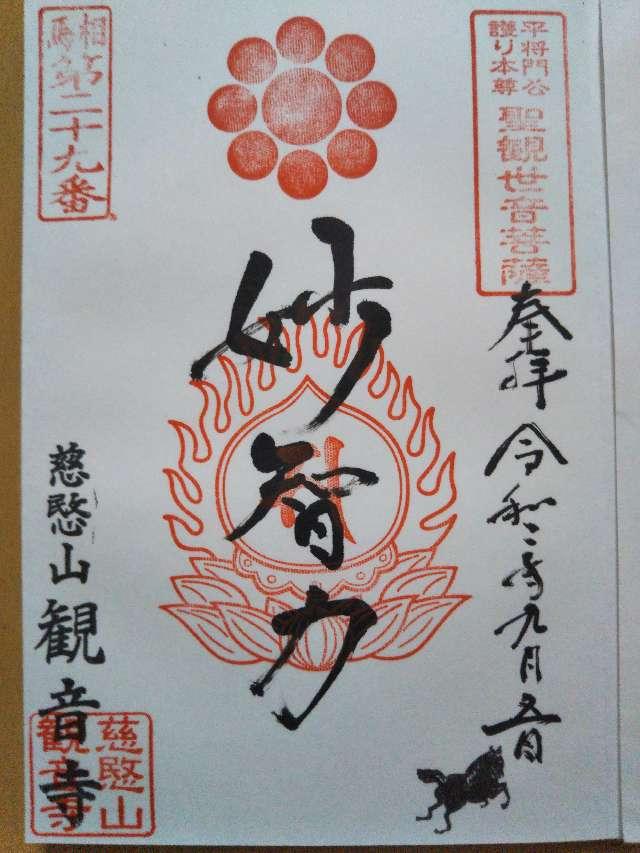 平将門公
護り本尊
聖観世音菩薩
奉拝
令和二年九月五日
妙智力
相馬
第二十九番
慈愍山
観音寺
慈愍山
観音寺